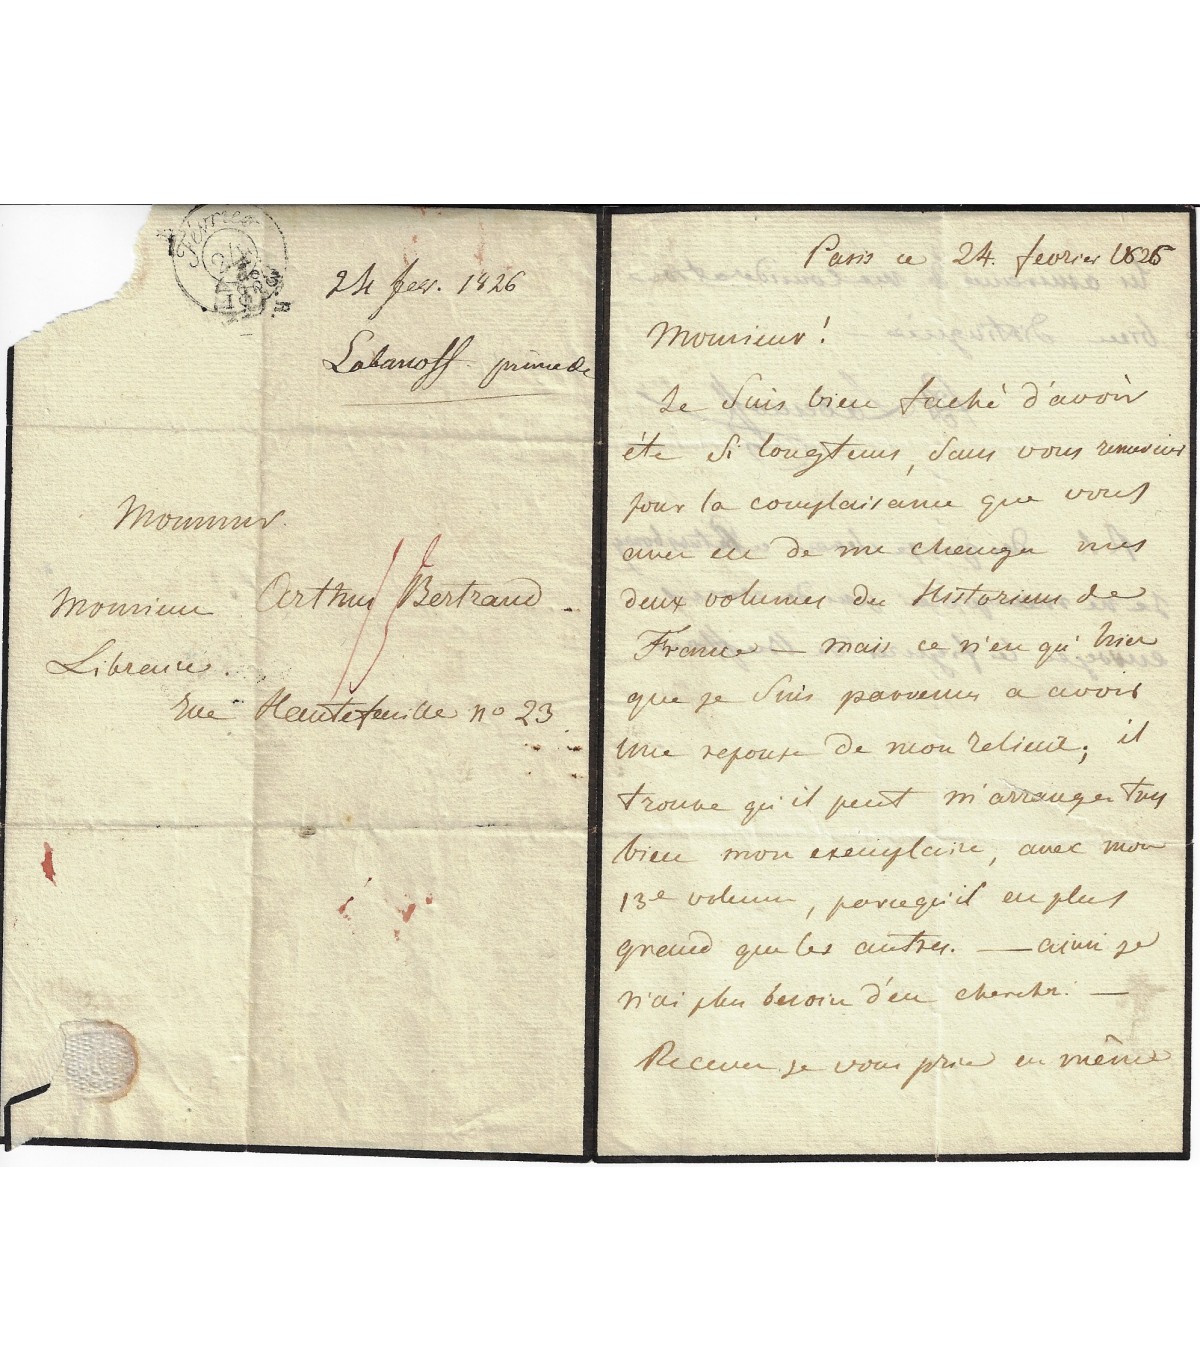 Février
24
1826
24 fev. 1826
Labanoff prince de
Monsieur
Monsieur Arthus Bertrand
Libraire
rue Hautefeuille nº 23
Paris ce 24 fevrier 1826
Monsieur!
Je suis bien faché d'avoir
éte si longtems, sans vous remercier
pour la complaisance que vous
avez eu de me changer mes
deux volumes du Historiens de
France — mais ce n'en qu'hier
que je suis parvenus a avoir
une reponse de mon relieur; il
trouve qu'il peut m'arranger tres
bien mon exemplaire, avec mon
13e volume, parcequ'il en plus
grand que les autres. — ainsi je
n'ai plus besoin d'en chercher. —
Recevez je vous prie en même